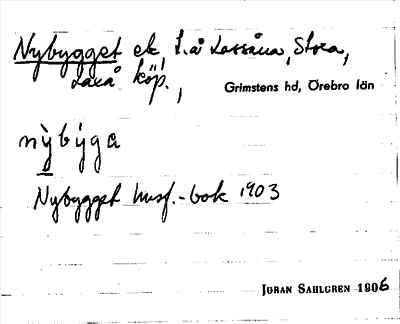 Nybygget ek, t.å Lassåna, Stora,
Laxå köp.,
Grimstens hd, Örebro län
nỳbýga
Nybygget husf.-bok 1903
Joran Sahlgren 1906